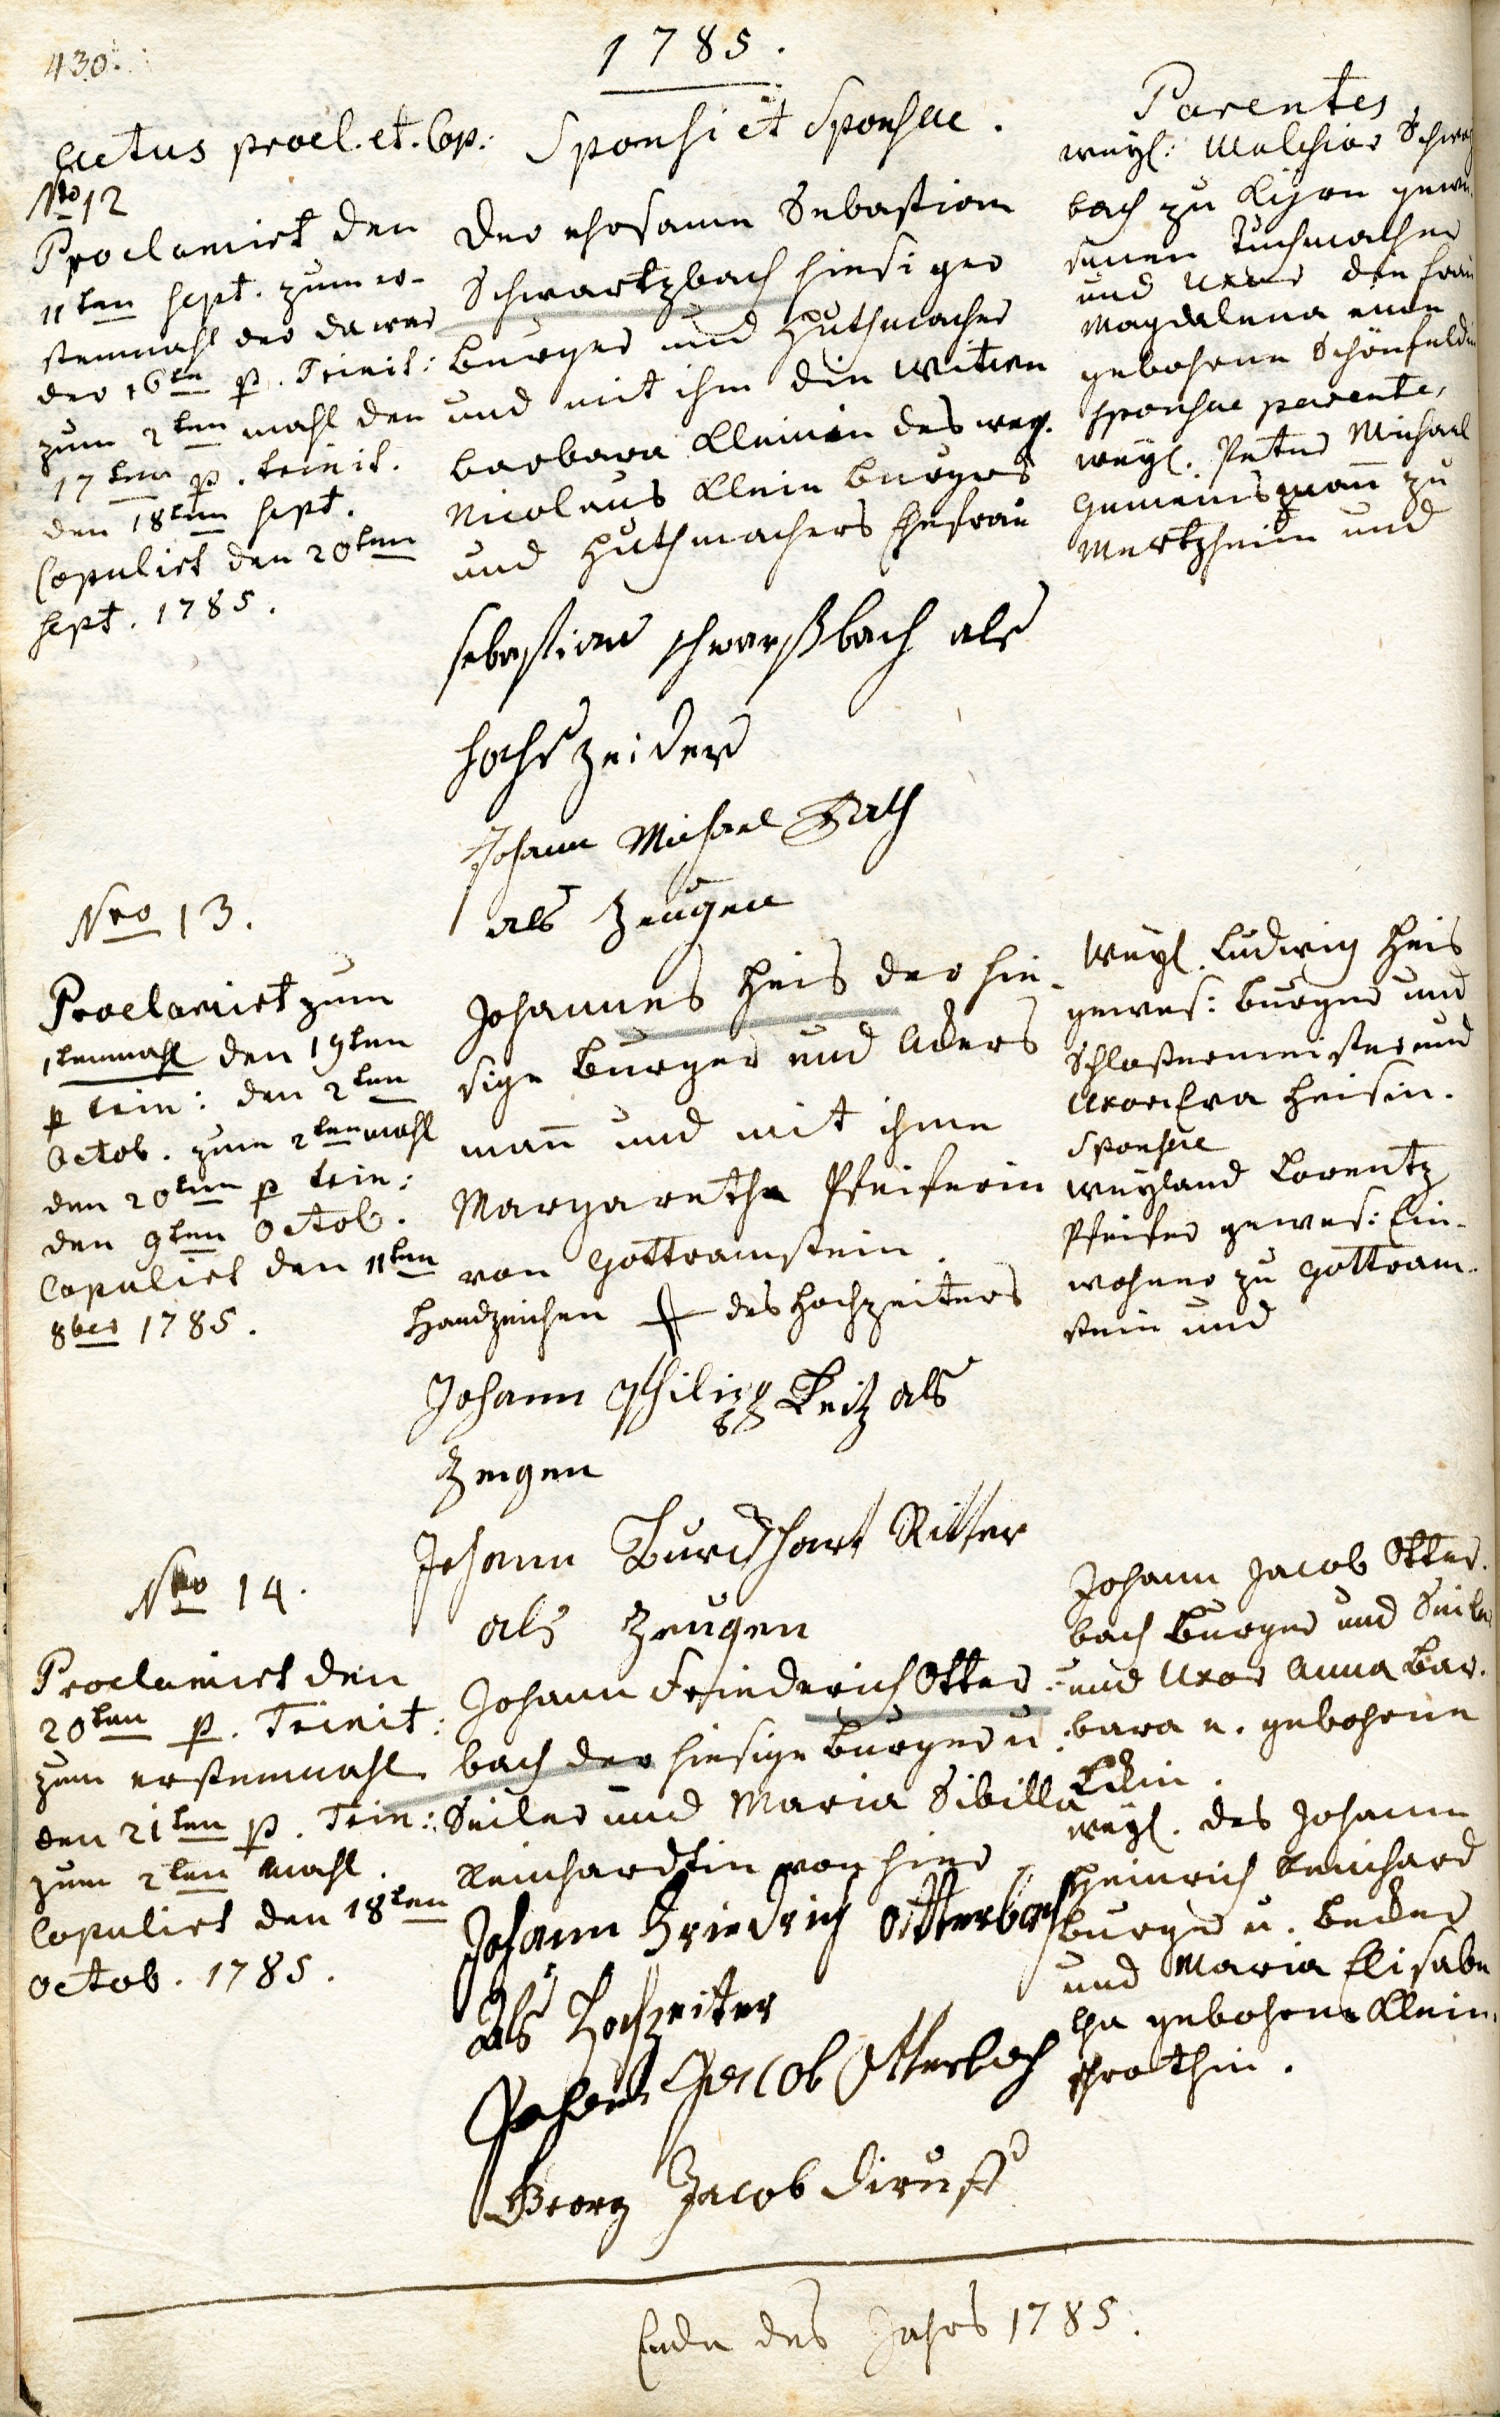 430.
1785.
Actus procl. et. Cop:
Sponsi et Sponsae.
Parentes,
Nro 12
Proclamirt den
11ten Sept. zum er-
stenmahl der da war
der 16te p. Trinit:
zum 2ten mahl den
17ten p. trinit.
den 18ten Sept.
Copulirt den 20ten
Sept. 1785.
Der ehrsame Sebastian
Schwartzbach hiesiger
burger und Huthmacher
und mit ihm die Witwe
barbara Kleinin des weyl.
Nicolaus Klein burgers
und Huthmachers Ehefrau
weyl: Melchior Schwarz
bach zu gewe-
senen Tuchmacher
und Uxor die frau
Magdalena eine
gebohrne Schönfeldin
Sponsae parente,
weyl. Peter Michael
Gemeinsmann zu
Mertzheim und
sebastian schwarßbach als
hochszeider
Johann Michael
als Zeugen
Nro 13.
Proclamirt zum
1tenmahl den 19ten
p trin: den 2ten
Octob. zum 2tenmahl
den 20ten p trin:
den 9ten Octob.
Copulirt den 11ten
8ber 1785.
Johannes Heis der hie-
sige Burger und Aders
mann und mit ihme
Margaretha Pfeiferin
von Gottramstein.
Handzeichen + des Hochzeiters
Weyl. Ludwig Heis
gewes: burger und
Schloßermeister und
Uxor Eva Heisin.
Sponsae
weyland Lorentz
Pfeifer gewes: Ein-
wohner zu Gottram-
stein und
Johann Philipp Leitz als
Zeigen
Johann Burckhart Ritter
als Zeugen
Nro 14.
Proclamirt den
20ten p. Trinit:
zum erstenmahl
den 21ten p. Trin:
zum 2ten mahl.
Copulirt den 18ten
Octob. 1785.
Johann Friederich Otter-
bach der hiesige burger u.
Seiler und Maria Sibilla
Reinhardtin von hier.
Johann Jacob Otter-
bach Burger und Seiler
und Uxor Anna Bar-
bara e. gebohrne
Eckin.
weyl. des Johann
Heinrich Reinhard
burger u. Becker
und Maria Elisabe
tha gebohrne Klein-
Johann Friedrich Otterbach
Als Hochzeiter
Johann Jacob Otterbach
Georg Jacob
Ende des Jahrs 1785.